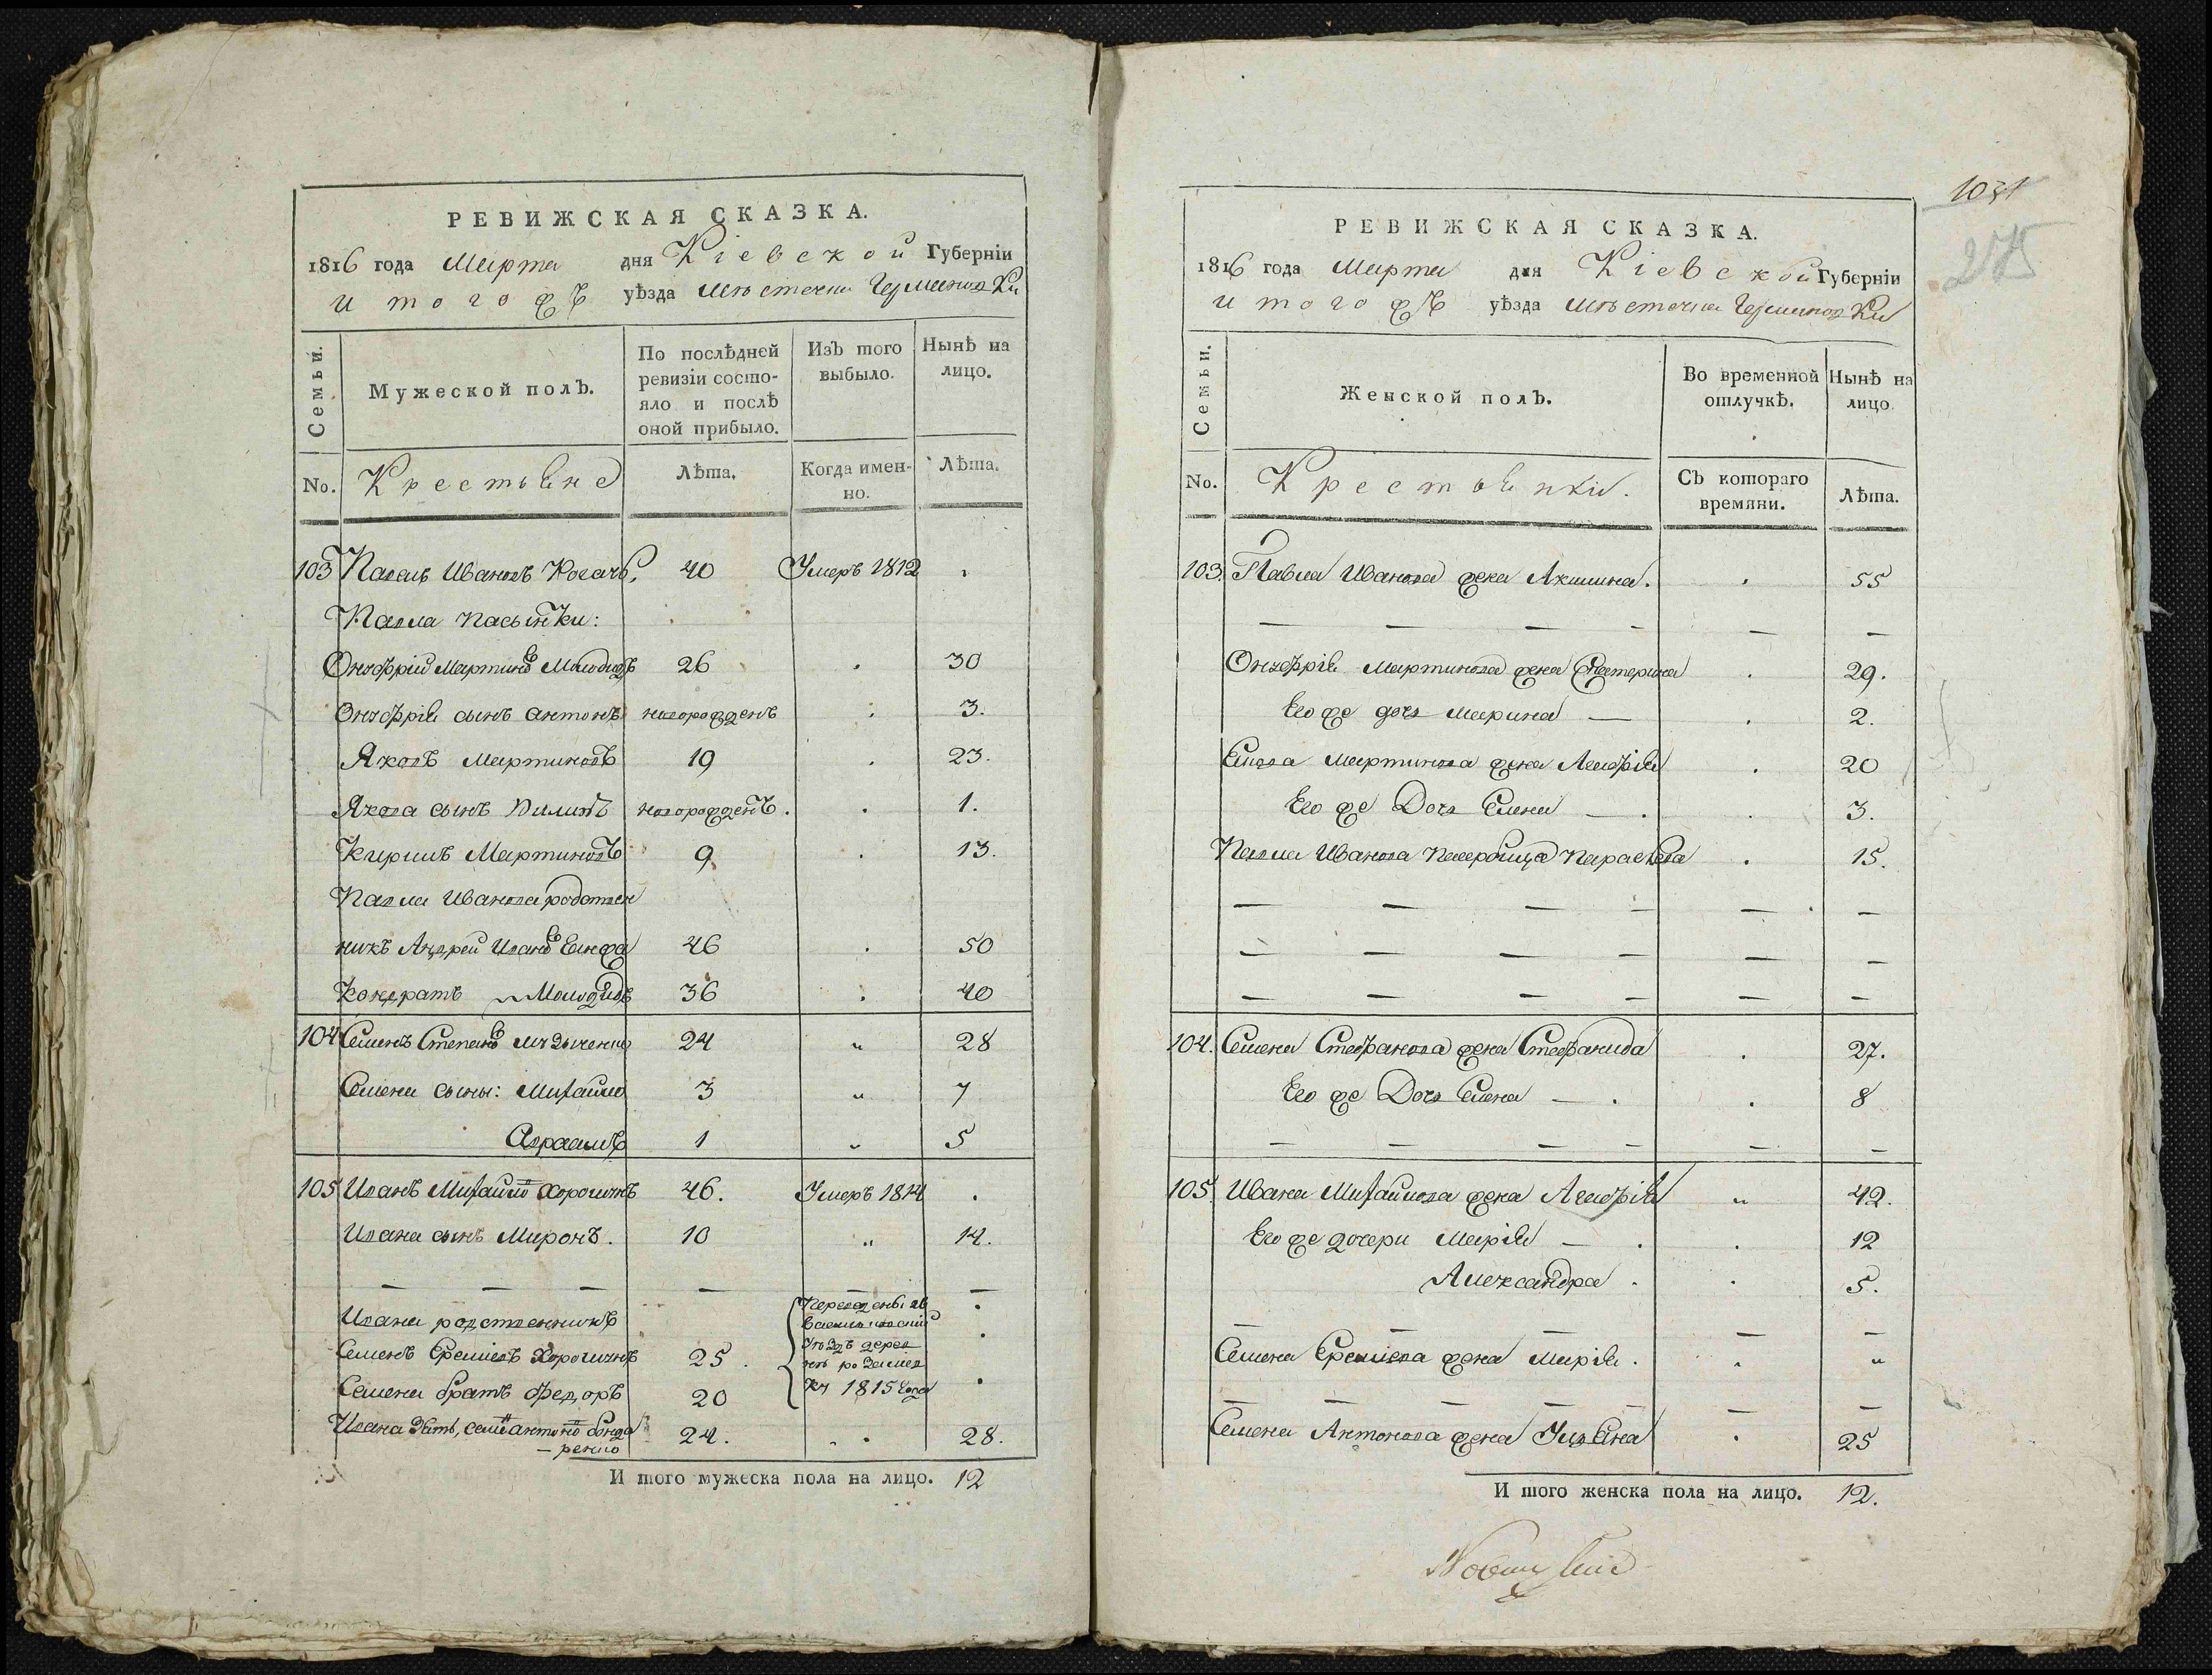 РЕВИЖСКАЯ СКАЗКА.
1816 года Марта дня Кіевской Губерніи
и того жъ уѣзда Мѣстечка Германовки
Семьи.
Мужеской полъ.
По послѣдней ревизіи состояло и послѣ оной прибыло.
Изъ того выбыло.
Нынѣ на лицо.
No. Крестьяне Лѣта. Когда именно. Лѣта.
103 Павелъ Ивановъ Косачъ, 40 Умеръ 1812
Павла пасынки:
Онуфрій Мартиновъ 26 30
Онуфрія сынъ Антонъ новорожденъ 3.
Яковъ Мартиновъ 19 23.
Якова сынъ Филипъ новорожденъ. 1.
Кирилъ Мартиновъ 9 13.
Павла Иванова работ
никъ Андрей Ивановъ 46 50
Кондратъ 36 40
104 Семенъ Степановъ 24 " 28
Семена сыны: Михайло 3 " 7
Авраамъ 1 " 5
105 Иванъ Михайловъ 46. Умеръ 1814
Ивана сынъ Миронъ. 10 " 14.
— — — — — —
Ивана родственникъ
Семенъ Еремѣевъ 25.
Семена братъ Федоръ 20
Переведены въ
Васильковскій
уѣздъ дерев
ню
1815 года
Ивана зять, Семенъ Антоновъ Бонда 24. 28.
-ренко
И того мужеска пола на лицо. 12
1031
275
РЕВИЖСКАЯ СКАЗКА.
1816 года Марта дня Кіевской Губерніи
и того жъ уѣзда Мѣстечка Германовки
Семьи.
Женской полъ.
Во временной отлучкѣ.
Нынѣ на лицо
No. Крестьянки. Съ котораго времяни. Лѣта.
103. Павла Иванова жена Акилина. 55
— — — — — —
Онуфрія Мартинова жена Екатерина 29.
Его же дочь Марина — 2.
Якова Мартинова жена Агафія 20
Его же Дочь Елена — 3.
Павла Иванова падчерица Параскева 15.
— — — — — —
— — — — — —
— — — — — —
104. Семена Стефанова жена Стефанида 27.
Его же Дочь Елена — 8
— — — — — —
105. Ивана Михайлова жена Агафія " 42.
Его же дочери Марія — 12
Александра 5.
— — — — —
Семена Еремѣева жена Марія. "
— — — — — —
Семена Антонова жена Уліана 25
И того женска пола на лицо. 12.